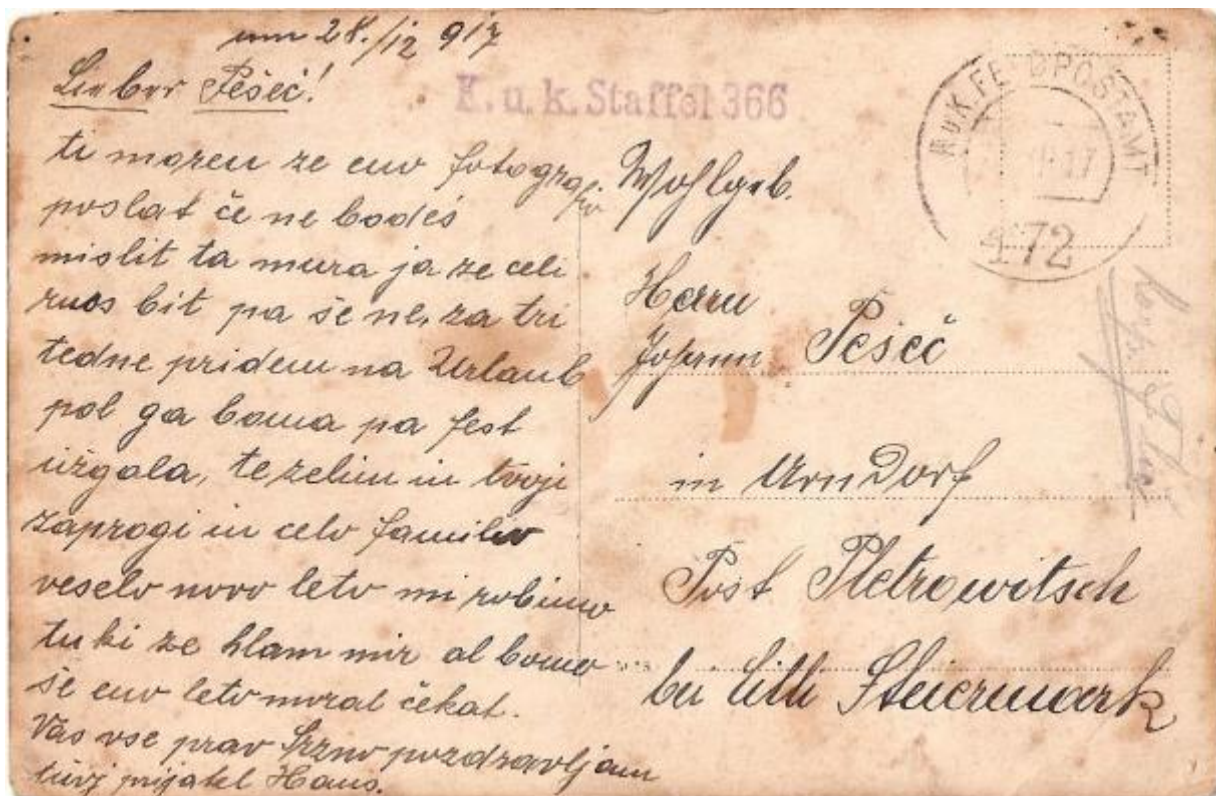 am 28./12 917
Lieber Pešec!
ti morem že eno fotografjo
poslat če ne bodeš
mislit ta mura ja že celi
ruos bit pa še ne, za tri
tedne pridem na Urlaub
pol ga boma pa fest
užgala, te želim in tvoji
zaprogi in celo familio
veselo novo leto mi robimo
tuki že hlam mir al bomo
še eno leto moral čekat.
Vas vse prav srzno pozdravljam
tuoj prijatel Hans.
K. u. k. Staffel 366
K.u.K. FELDPOSTAMT
17
472
Wohlgeb.
Herrn
Johann Pešec
in Arndorf
Post Pletrowitsch
bei Cilli Steiermark